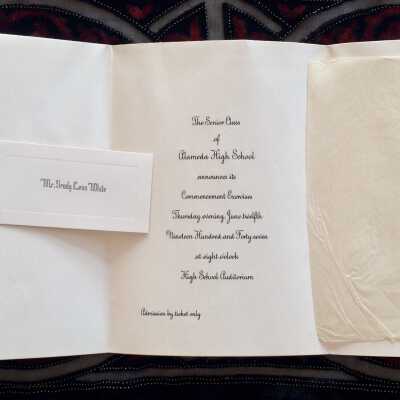 Mr. Brady Leon White
The Senior Class
of
Alameda High School
announces its
Commencement Exercises
Thursday evening, June twelfth
Nineteen Hundred and Forty-seven
at eight o'clock
High School Auditorium
Admission by ticket only